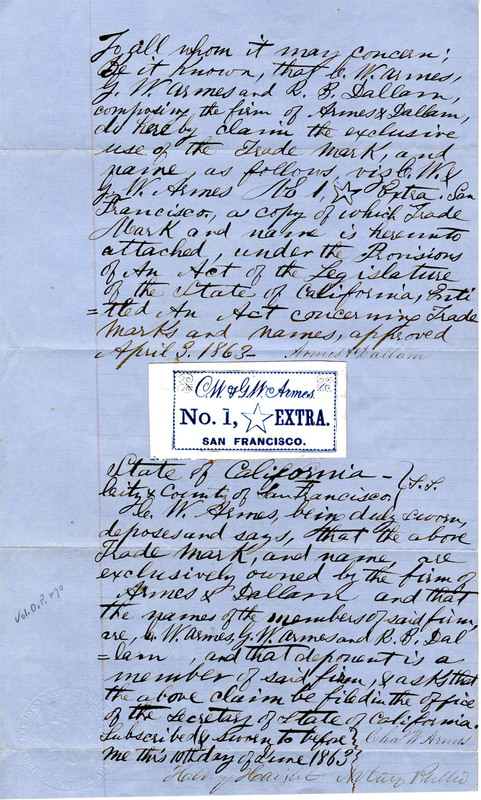 To all whom it may concern;
Be it Known, that C. W. Armes,
G. W Armes and R. B. Dallam,
composing the firm of Armes & Dallam,
do here by claim the exclusive
use of the Trade Mark, and
name, as follows, viz C. W. &
G. W. Armes No 1, ☆ Extra. San
Francisco, a copy of which Trade
Mark and name is hereunto
attached, under the Provisions
of An Act of the Legislature
of the State of California, Enti
=tled An Act concerning Trade
Marks and names, approved
April 3. 1863— Armes & Dallam
C.W. & G.W. Armes.
No. 1, ☆ EXTRA.
SAN FRANCISCO.
State of California – } S.S.
City & County of San Francisco
C. W. Armes, being duly sworn,
deposes and says, that the above
Trade Mark, and name, are
exclusively owned by the firm of
Armes & Dallam and that
the names of the members of said firm,
are, C. W. Armes, G. W. Armes and R. B. Dal
=lam, and that deponent is a
member of said firm, & asks that
the above claim be filed in the office
of the Secretary of State of California.
Subscribed & sworn to before } Chas W Armes
me this 10th day of June 1863 }
Henry Haight Notary Public
Vol. O.P. 270